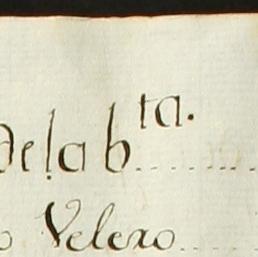 dela bta.
o Velero